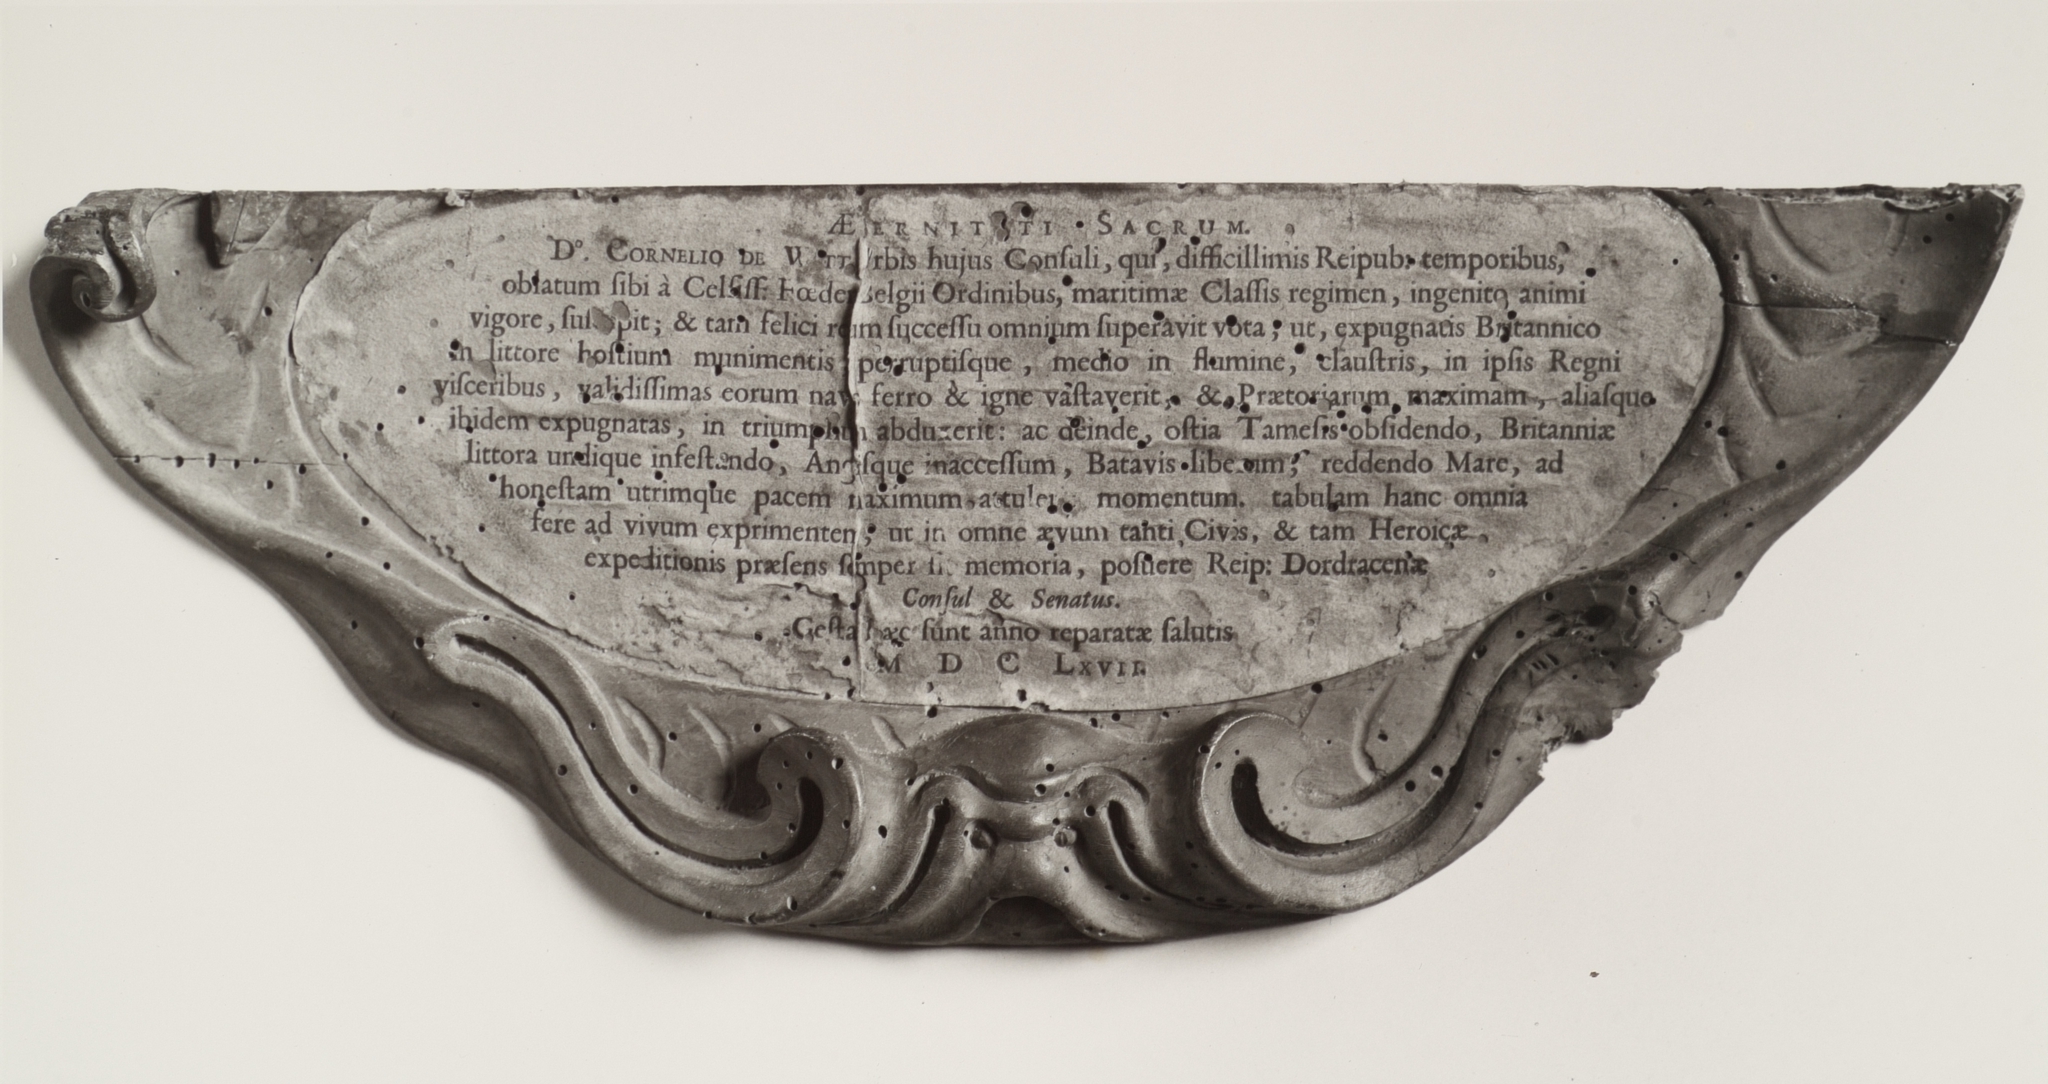 ÆTERNITATI • SACRUM.
Dº. CORNELIO DE WITT Urbis hujus Conſuli, qui, difficillimis Reipub: temporibus,
oblatum ſibi à Celſiſſ: Fœder Belgii Ordinibus, maritimæ Claſſis regimen, ingenito animi
vigore, ſuſcepit; & tam felici rerum ſucceſſu omnium ſuperavit vota; ut, expugnatis Britannico
in littore hoſtium munimentis perruptiſque, medio in flumine, clauſtris, in ipſis Regni
viſceribus, validiſſimas eorum naves ferro & igne vaſtaverit, & Prætoriarum maximam, aliaſque
ibidem expugnatas, in triumphum abduxerit: ac deinde, oſtia Tameſis obſidendo, Britanniæ
littora undique infeſtando, Angliſque inacceſſum, Batavis liberum, reddendo Mare, ad
honeſtam utrimque pacem maximum attulerit momentum. tabulam hanc omnia
fere ad vivum exprimentem, ut in omne ævum tanti Civis, & tam Heroicæ
expeditionis præſens ſemper ſit memoria, poſuere Reip: Dordracenæ
Conſul & Senatus.
Geſta hæc ſunt anno reparatæ ſalutis
M D C LXVII.